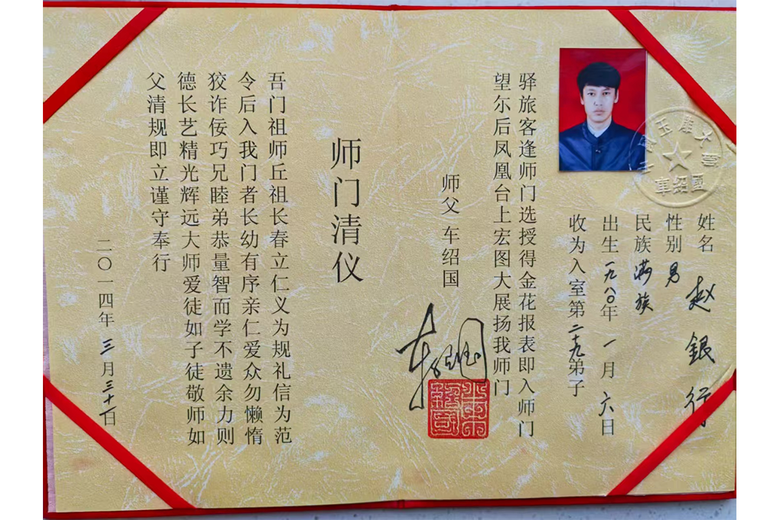 姓名 赵银行
性别 男
民族 满族
出生 一九八〇年一月六日
收为入室第二十九弟子
驿旅客逢师门选授得金花报表即入师门
望尔后凤凰台上宏图大展扬我师门
师父 车绍国
师门清仪
吾门祖师丘祖长春立仁义为规礼信为范
令后入我门者长幼有序亲仁爱众勿懒惰
狡诈佞巧兄睦弟恭量智而学不遗余力则
德长艺精光辉远大师爱徒如子徒敬师如
父清规即立谨守奉行
二〇一四年三月三十一日